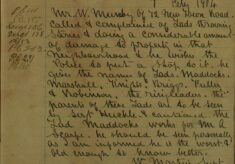 7 Feby 1914
Mr. W. Munday of 72 New Dover Road
called & complained of Lads throwing
Stones & doing a considerable amount
of damage to property in that
Neighbourhood & he wishes the
Police to put a stop to it. He
gives the name of Lads. Maddocks,
Marshall, Knight,
& Robinson, as the ringleaders. The
parents of these Lads are to be
seen by Sergt & cautioned. The
Lad Maddocks works for Mr
he should be seen personally
as I am informed he is the worst &
old enough to know better.